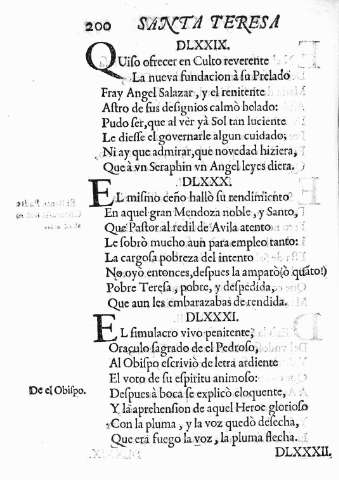 200 SANTA TERESA
DLXXIX.
QUiso ofrecer en Culto reverente
La nueva fundacion à su Prelado
Fray Angel Salazar, y el renitente
Astro de sus designios calmò helado:
Pudo ser, que al ver yà Sol tan luciente
Le diesse el governarle algun cuidado;
Ni ay que admirar, que novedad hiziera,
Que à vn Seraphin vn Angel leyes diera.
DLXXX.
EL mismo ceño hallò su rendimiento
En aquel gran Mendoza noble, y Santo,
Que Pastor al redil de Avila atento
Le sobrò mucho aun para empleo tanto:
La cargosa pobreza del intento
No oyò entonces, despues la amparò (ò quãto!)
Pobre Teresa, pobre, y despedida,
Que aun les embarazabas de rendida.
DLXXXI.
EL simulacro vivo penitente,
Oraculo sagrado de el Pedroso,
Al Obispo escriviò de letra ardiente
El voto de su espiritu animoso:
De el Obispo.
Despues à boca se explicò eloquente,
Y la aprehension de aquel Heroe glorioso
Con la pluma, y la voz quedò desecha,
Que era fuego la voz, la pluma flecha.
DLXXXII.